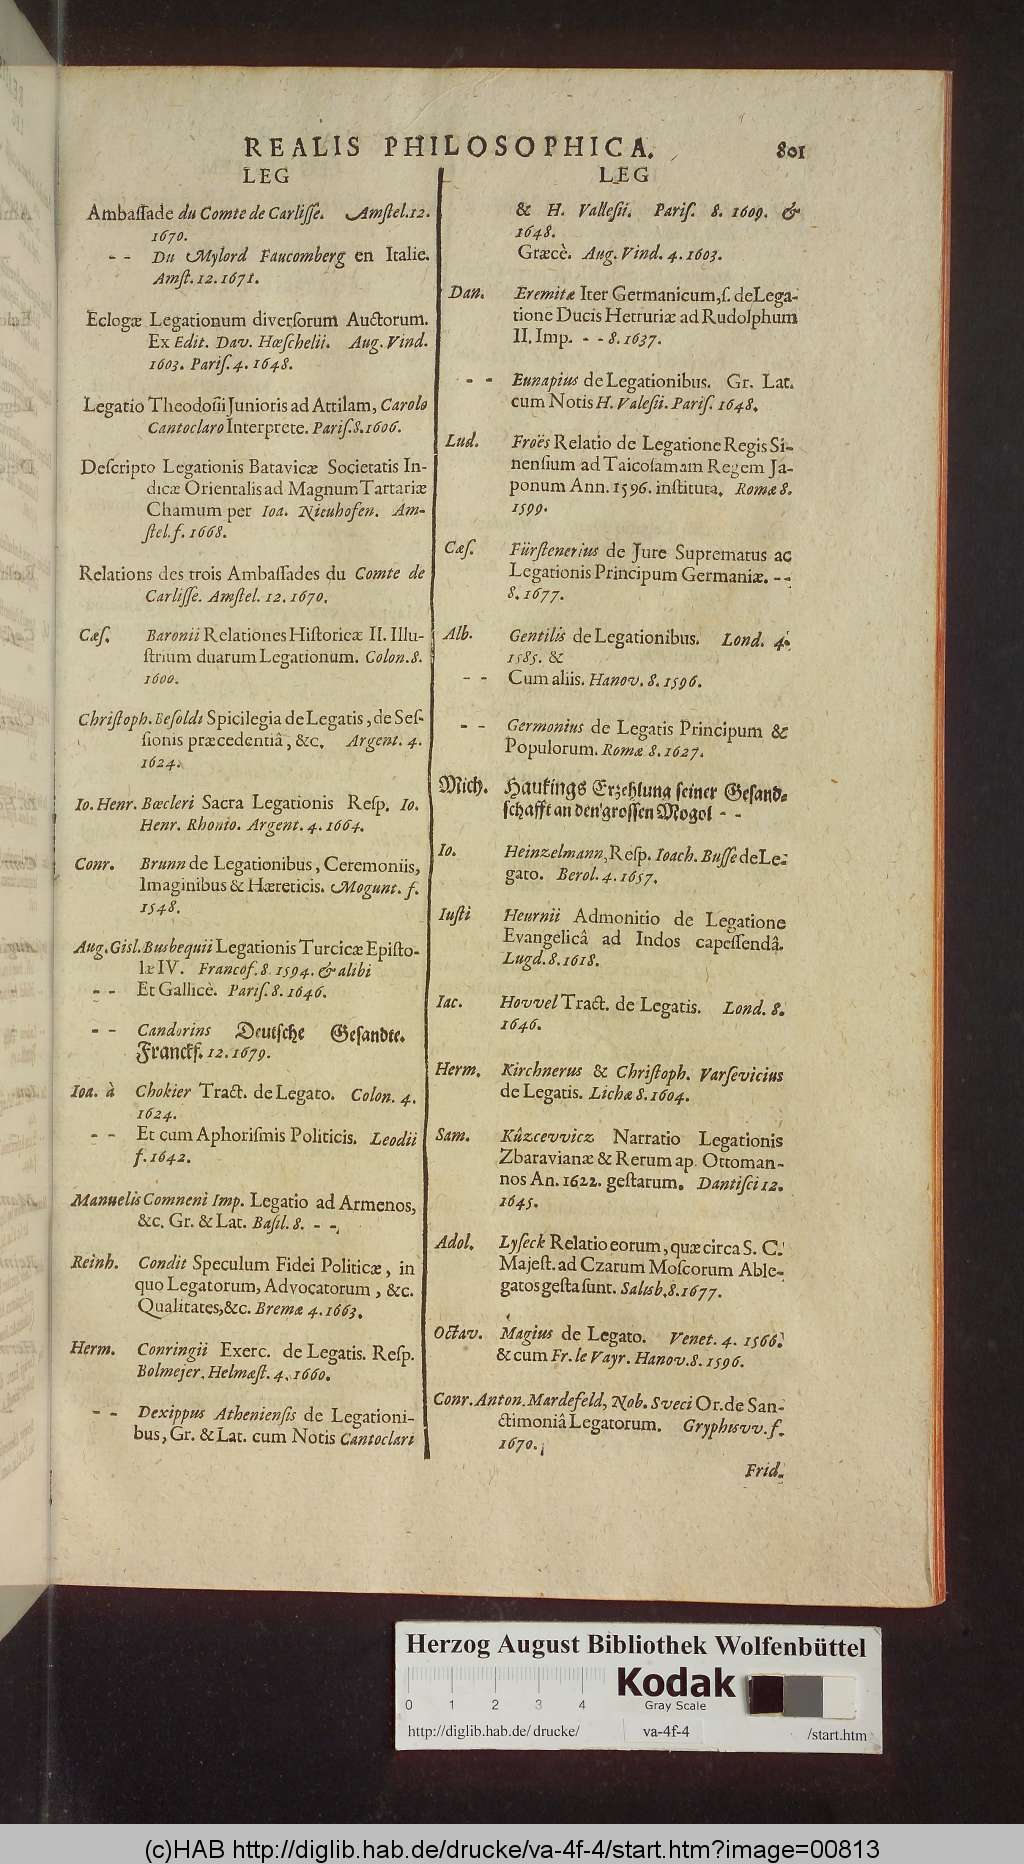 REALIS PHILOSOPHICA. 801
LEG
Ambaſſade du Comte de Carliſſe. Amſtel.12.
1670.
- - Du Mylord Faucomberg en Italie.
Amſt. 12. 1671.
Eclogæ Legationum diverſorum Auctorum.
Ex Edit. Dav. Hœſchelii. Aug. Vind.
1603. Pariſ. 4. 1648.
Legatio Theodoſii Junioris ad Attilam, Carolo
Cantoclaro Interprete. Pariſ. 8. 1606.
Deſcripto Legationis Batavicæ Societatis In-
dicæ Orientalis ad Magnum Tartariæ
Chamum per Ioa. Nieuhofen. Am-
ſtel. f. 1668.
Relations des trois Ambaſſades du Comte de
Carliſſe. Amſtel. 12. 1670.
Cæſ. Baronii Relationes Hiſtoricæ II. Illu-
ſtrium duarum Legationum. Colon. 8.
1600.
Chriſtoph. Beſoldi Spicilegia de Legatis, de Seſ-
ſionis præcedentiâ, &c. Argent. 4.
1624.
Io. Henr. Bœcleri Sacra Legationis Reſp. Io.
Henr. Rhonio. Argent. 4. 1664.
Conr. Brunn de Legationibus, Ceremoniis,
Imaginibus & Hæreticis. Mogunt. f.
1548.
Aug. Gisl. Busbequii Legationis Turcicæ Epiſto-
læ IV. Francof. 8. 1594. & alibi
- - Et Gallicè. Pariſ. 8. 1646.
- - Candorins Deutſche Geſandte.
Franckf. 12. 1679.
Ioa. à Chokier Tract. de Legato. Colon. 4.
1624.
- - Et cum Aphoriſmis Politicis. Leodii
f. 1642.
Manuelis Comneni Imp. Legatio ad Armenos,
&c. Gr. & Lat. Baſil. 8. - -
Reinh. Condit Speculum Fidei Politicæ, in
quo Legatorum, Advocatorum, &c.
Qualitates, &c. Bremæ 4. 1663.
Herm. Conringii Exerc. de Legatis. Reſp.
Bolmejer. Helmæſt. 4. 1660.
- - Dexippus Athenienſis de Legationi-
bus, Gr. & Lat. cum Notis Cantoclari
LEG
& H. Valleſii. Pariſ. 8. 1609. &
1648.
Græcè. Aug. Vind. 4. 1603.
Dan. Eremitæ Iter Germanicum, ſ. de Lega-
tione Ducis Hetruriæ ad Rudolphum
II. Imp. - - 8. 1637.
- - Eunapius de Legationibus. Gr. Lat.
cum Notis H. Valeſii. Pariſ. 1648.
Lud. Froës Relatio de Legatione Regis Si-
nenſium ad Taicoſamam Regem Ja-
ponum Ann. 1596. inſtituta. Romæ 8.
1599.
Cæſ. Fürſtenerius de Jure Suprematus ac
Legationis Principum Germaniæ. - -
8. 1677.
Alb. Gentilis de Legationibus. Lond. 4.
1585. &
- - Cum aliis. Hanov. 8. 1596.
- - Germonius de Legatis Principum &
Populorum. Romæ 8. 1627.
Mich. Haukings Erzehlung ſeiner Geſand-
ſchafft an den groſſen Mogol - -
Io. Heinzelmann, Reſp. Ioach. Buſſe de Le-
gato. Berol. 4. 1657.
Iuſti Heurnii Admonitio de Legatione
Evangelicâ ad Indos capeſſendâ.
Lugd. 8. 1618.
Iac. Hovvel Tract. de Legatis. Lond. 8.
1646.
Herm. Kirchnerus & Chriſtoph. Varſevicius
de Legatis. Lichæ 8. 1604.
Sam. Kûzcevvicz Narratio Legationis
Zbaravianæ & Rerum ap. Ottoman-
nos An. 1622. geſtarum. Dantiſci 12.
1645.
Adol. Lyſeck Relatio eorum, quæ circa S. C.
Majeſt. ad Czarum Moſcorum Able-
gatos geſta ſunt. Salisb. 8. 1677.
Octav. Magius de Legato. Venet. 4. 1566.
& cum Fr. le Vayr. Hanov. 8. 1596.
Conr. Anton. Mardefeld, Nob. Sveci Or. de San-
ctimoniâ Legatorum. Gryphisvv. f.
1670.
Frid.
Herzog August Bibliothek Wolfenbüttel
0 1 2 3 4
Kodak
Gray Scale
http://diglib.hab.de/drucke/ va-4f-4 /start.htm
(c)HAB http://diglib.hab.de/drucke/va-4f-4/start.htm?image=00813